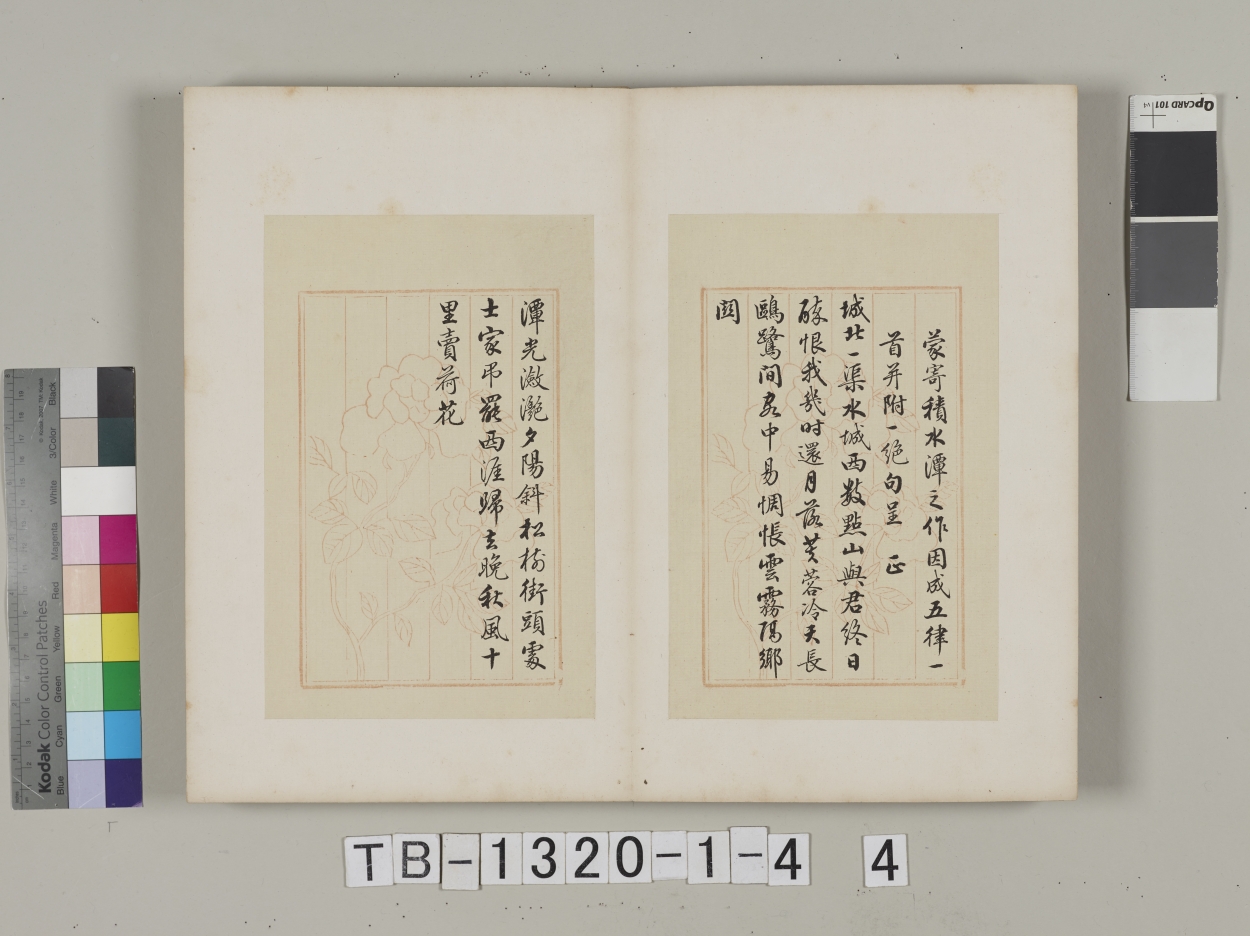 蒙寄積水潭之作因成五律一
首并附一絕句呈 正
城北一渠水城西數點山與君終日
醉恨我幾時還月落芙蓉冷天長
鷗鷺間忽中易惆悵雲霧隔鄉
関
潭光瀲灧夕陽斜松樹街頭處
士家弔罷西涯歸去晚秋風十
里賣荷花
QpCARD 101 v1
Kodak Color Control Patches
Blue Cyan Green Yellow Red Magenta White 3/Color Black
TB-1320-1-4 4